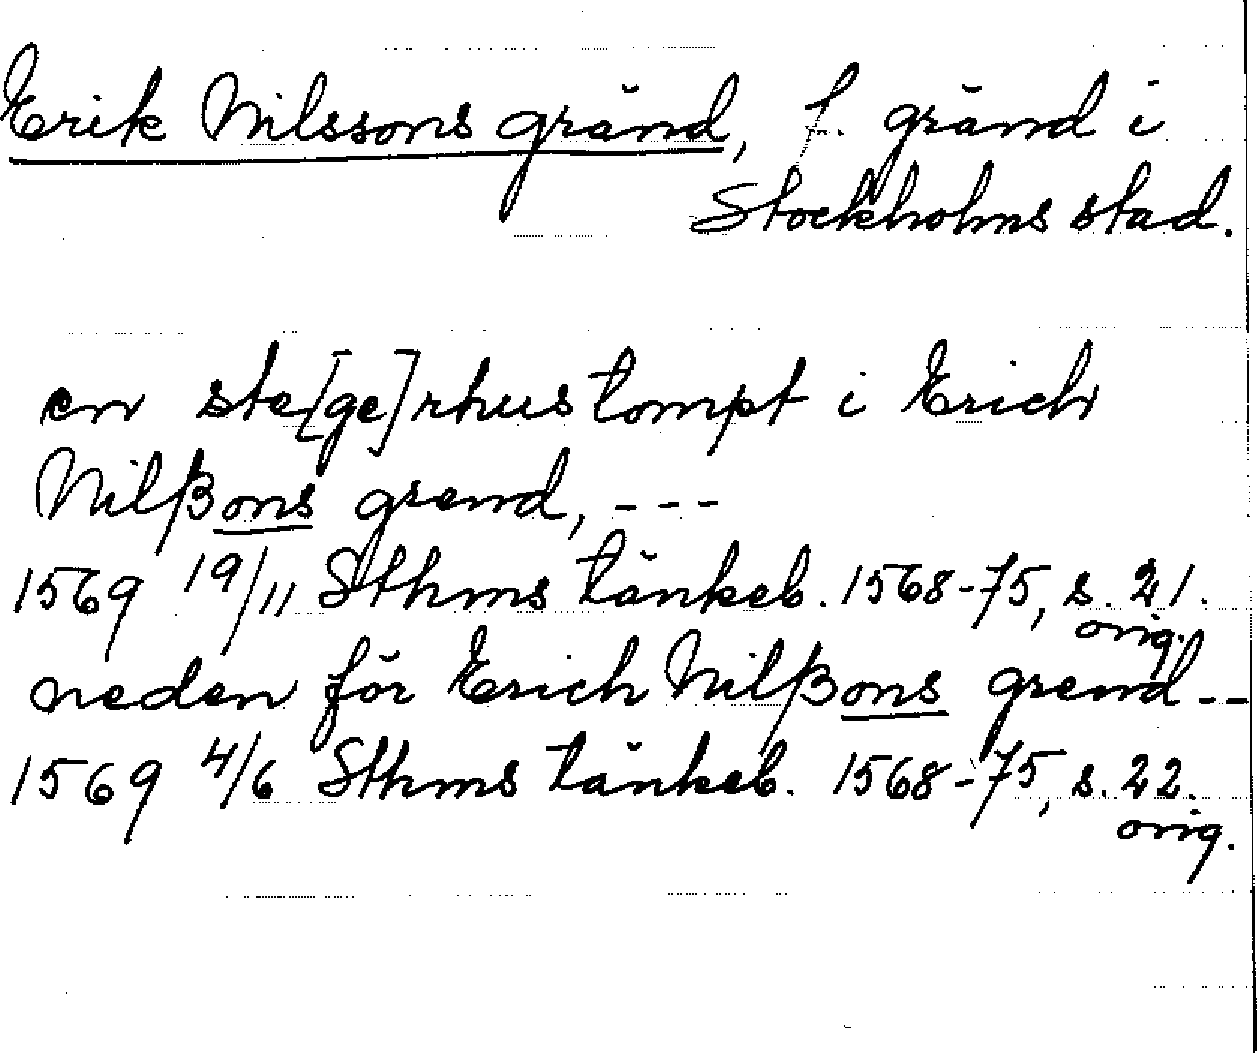 Erik Nilssons gränd, f. gränd i
Stockholms stad.
en ste[ge]rhus tompt i Erich
Nilßons grend, ---
1569 19/11 Sthms tänkeb. 1568-75, s. 21.
orig.
neden för Erich Nilßons grend --
1569 4/6 Sthms tänkeb. 1568-75, s. 22.
orig.